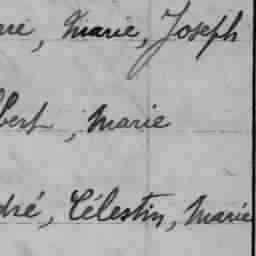 , Marie, Joseph
bert, Marie
dré, Célestin, Marie